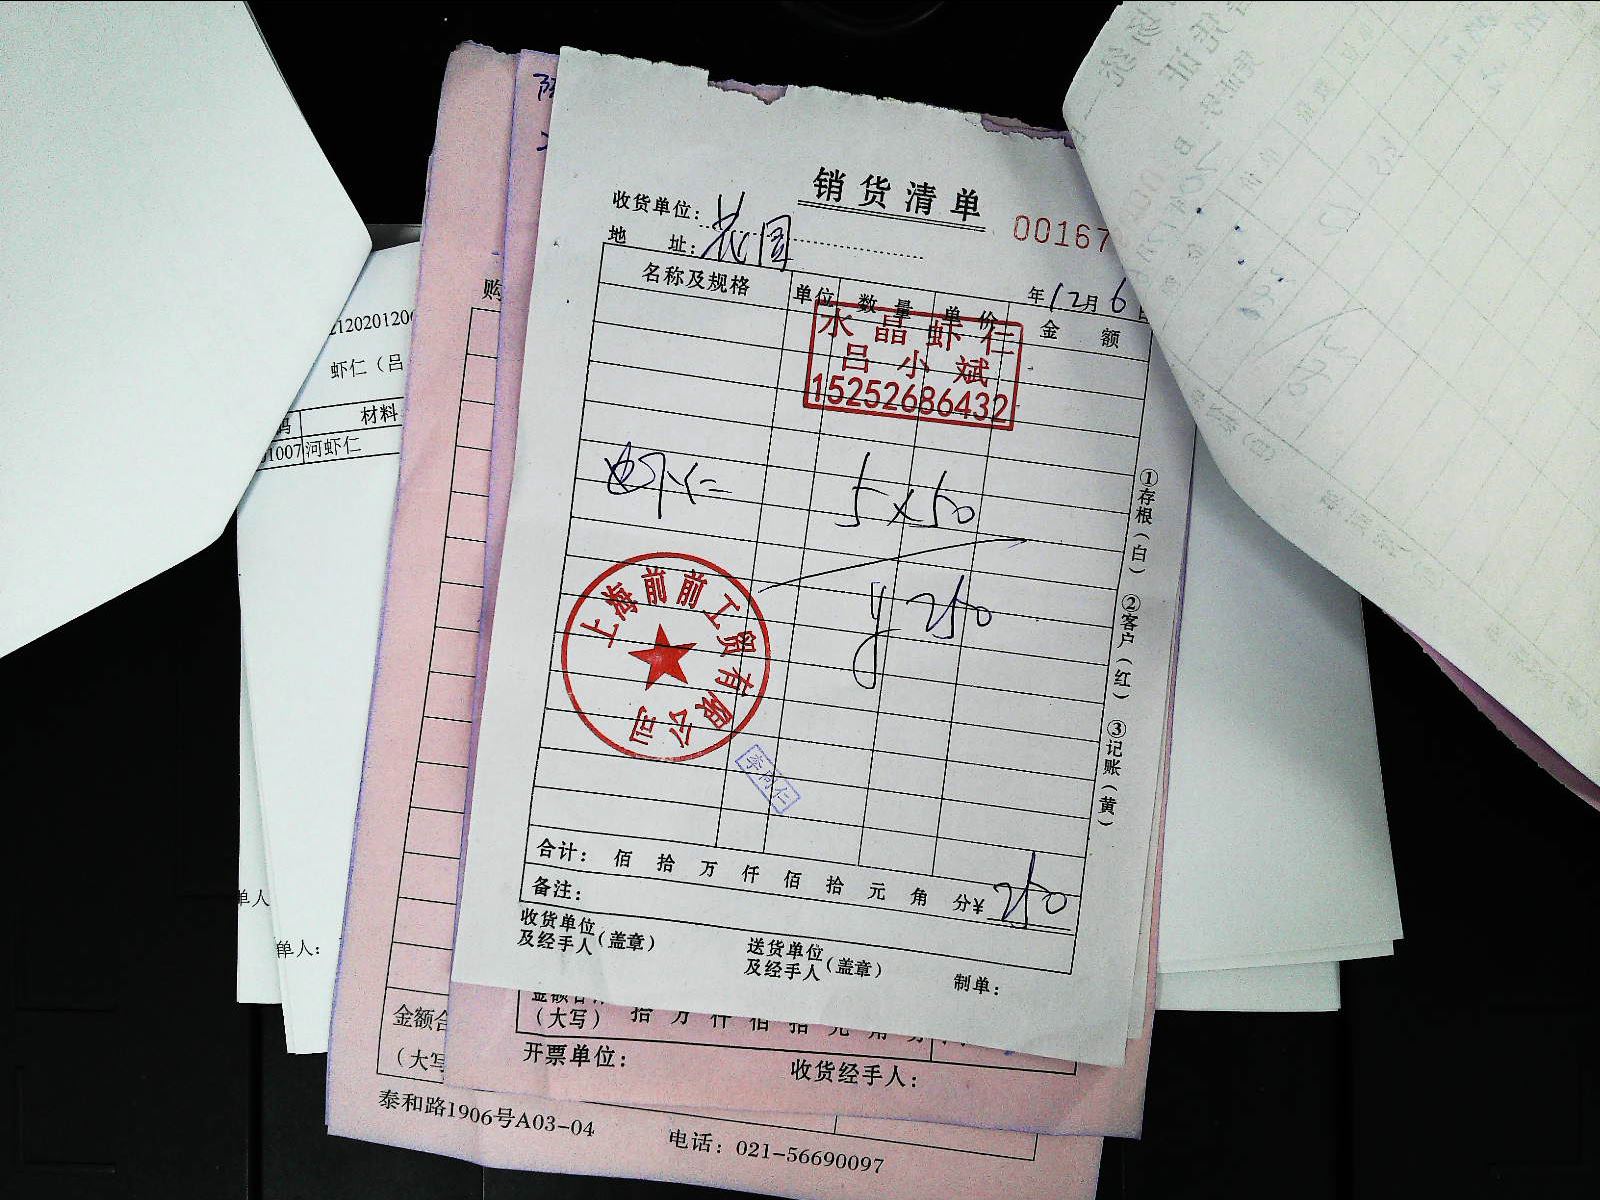 销货清单
收货单位：花园
00167
地 址：
年12月6日
名称及规格 单位 数量 单价 金额
水晶虾仁
吕小斌
15252686432
虾仁 5×50
¥250
上海前前工贸有限公司
合计： 佰 拾 万 仟 佰 拾 元 角 分¥250
备注：
收货单位及经手人（盖章）
送货单位及经手人（盖章）
制单：
①存根（白） ②客户（红） ③记账（黄）
虾仁（吕
材料
1007 河虾仁
单人
单人：
购
金额合
（大写
（大写） 拾 万 仟 佰 拾 元 角
开票单位：
收货经手人：
泰和路1906号A03-04
电话：021-56690097